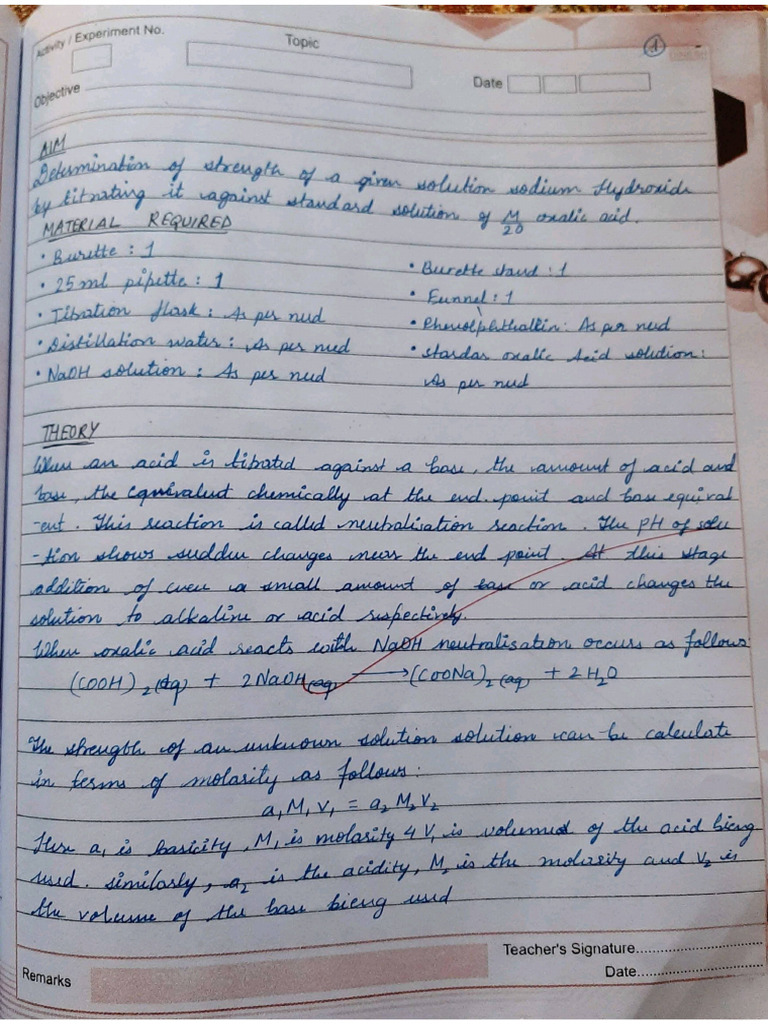 Activity / Experiment No.
Topic
1
Date
Objective
AIM
Determination of strength of a given solution sodium Hydroxide
by titrating it against standard solution of M/20 oxalic acid.
MATERIAL REQUIRED
• Burette : 1
• 25 ml pipette : 1
• Titration flask : As per need
• Distillation water : As per need
• NaOH solution : As per need
• Burette stand : 1
• Funnel : 1
• Phenolphthallin : As per need
• standar oxalic Acid solution :
As per need
THEORY
When an acid is titrated against a base, the amount of acid and
base, the equivalent chemically at the end point and base equival
-ent. This reaction is called neutralisation reaction. The PH of solu
-tion shows sudden changes near the end point. At this stage
addition of even a small amount of base or acid changes the
solution to alkaline or acid respectively.
When oxalic acid reacts with NaOH neutralisation occurs as follows
(COOH)₂(aq) + 2NaOH(aq) ⟶ (COONa)₂(aq) + 2H₂O
The strength of an unknown solution solution can be calculate
in terms of molarity as follows:
a₁M₁V₁ = a₂M₂V₂
Here a₁ is basicity, M₁ is molarity & V₁ is volume of the acid bieng
used. similarly, a₂ is the acidity, M₂ is the molarity and V₂ is
the volume of the base bieng used
Teacher's Signature
Remarks
Date